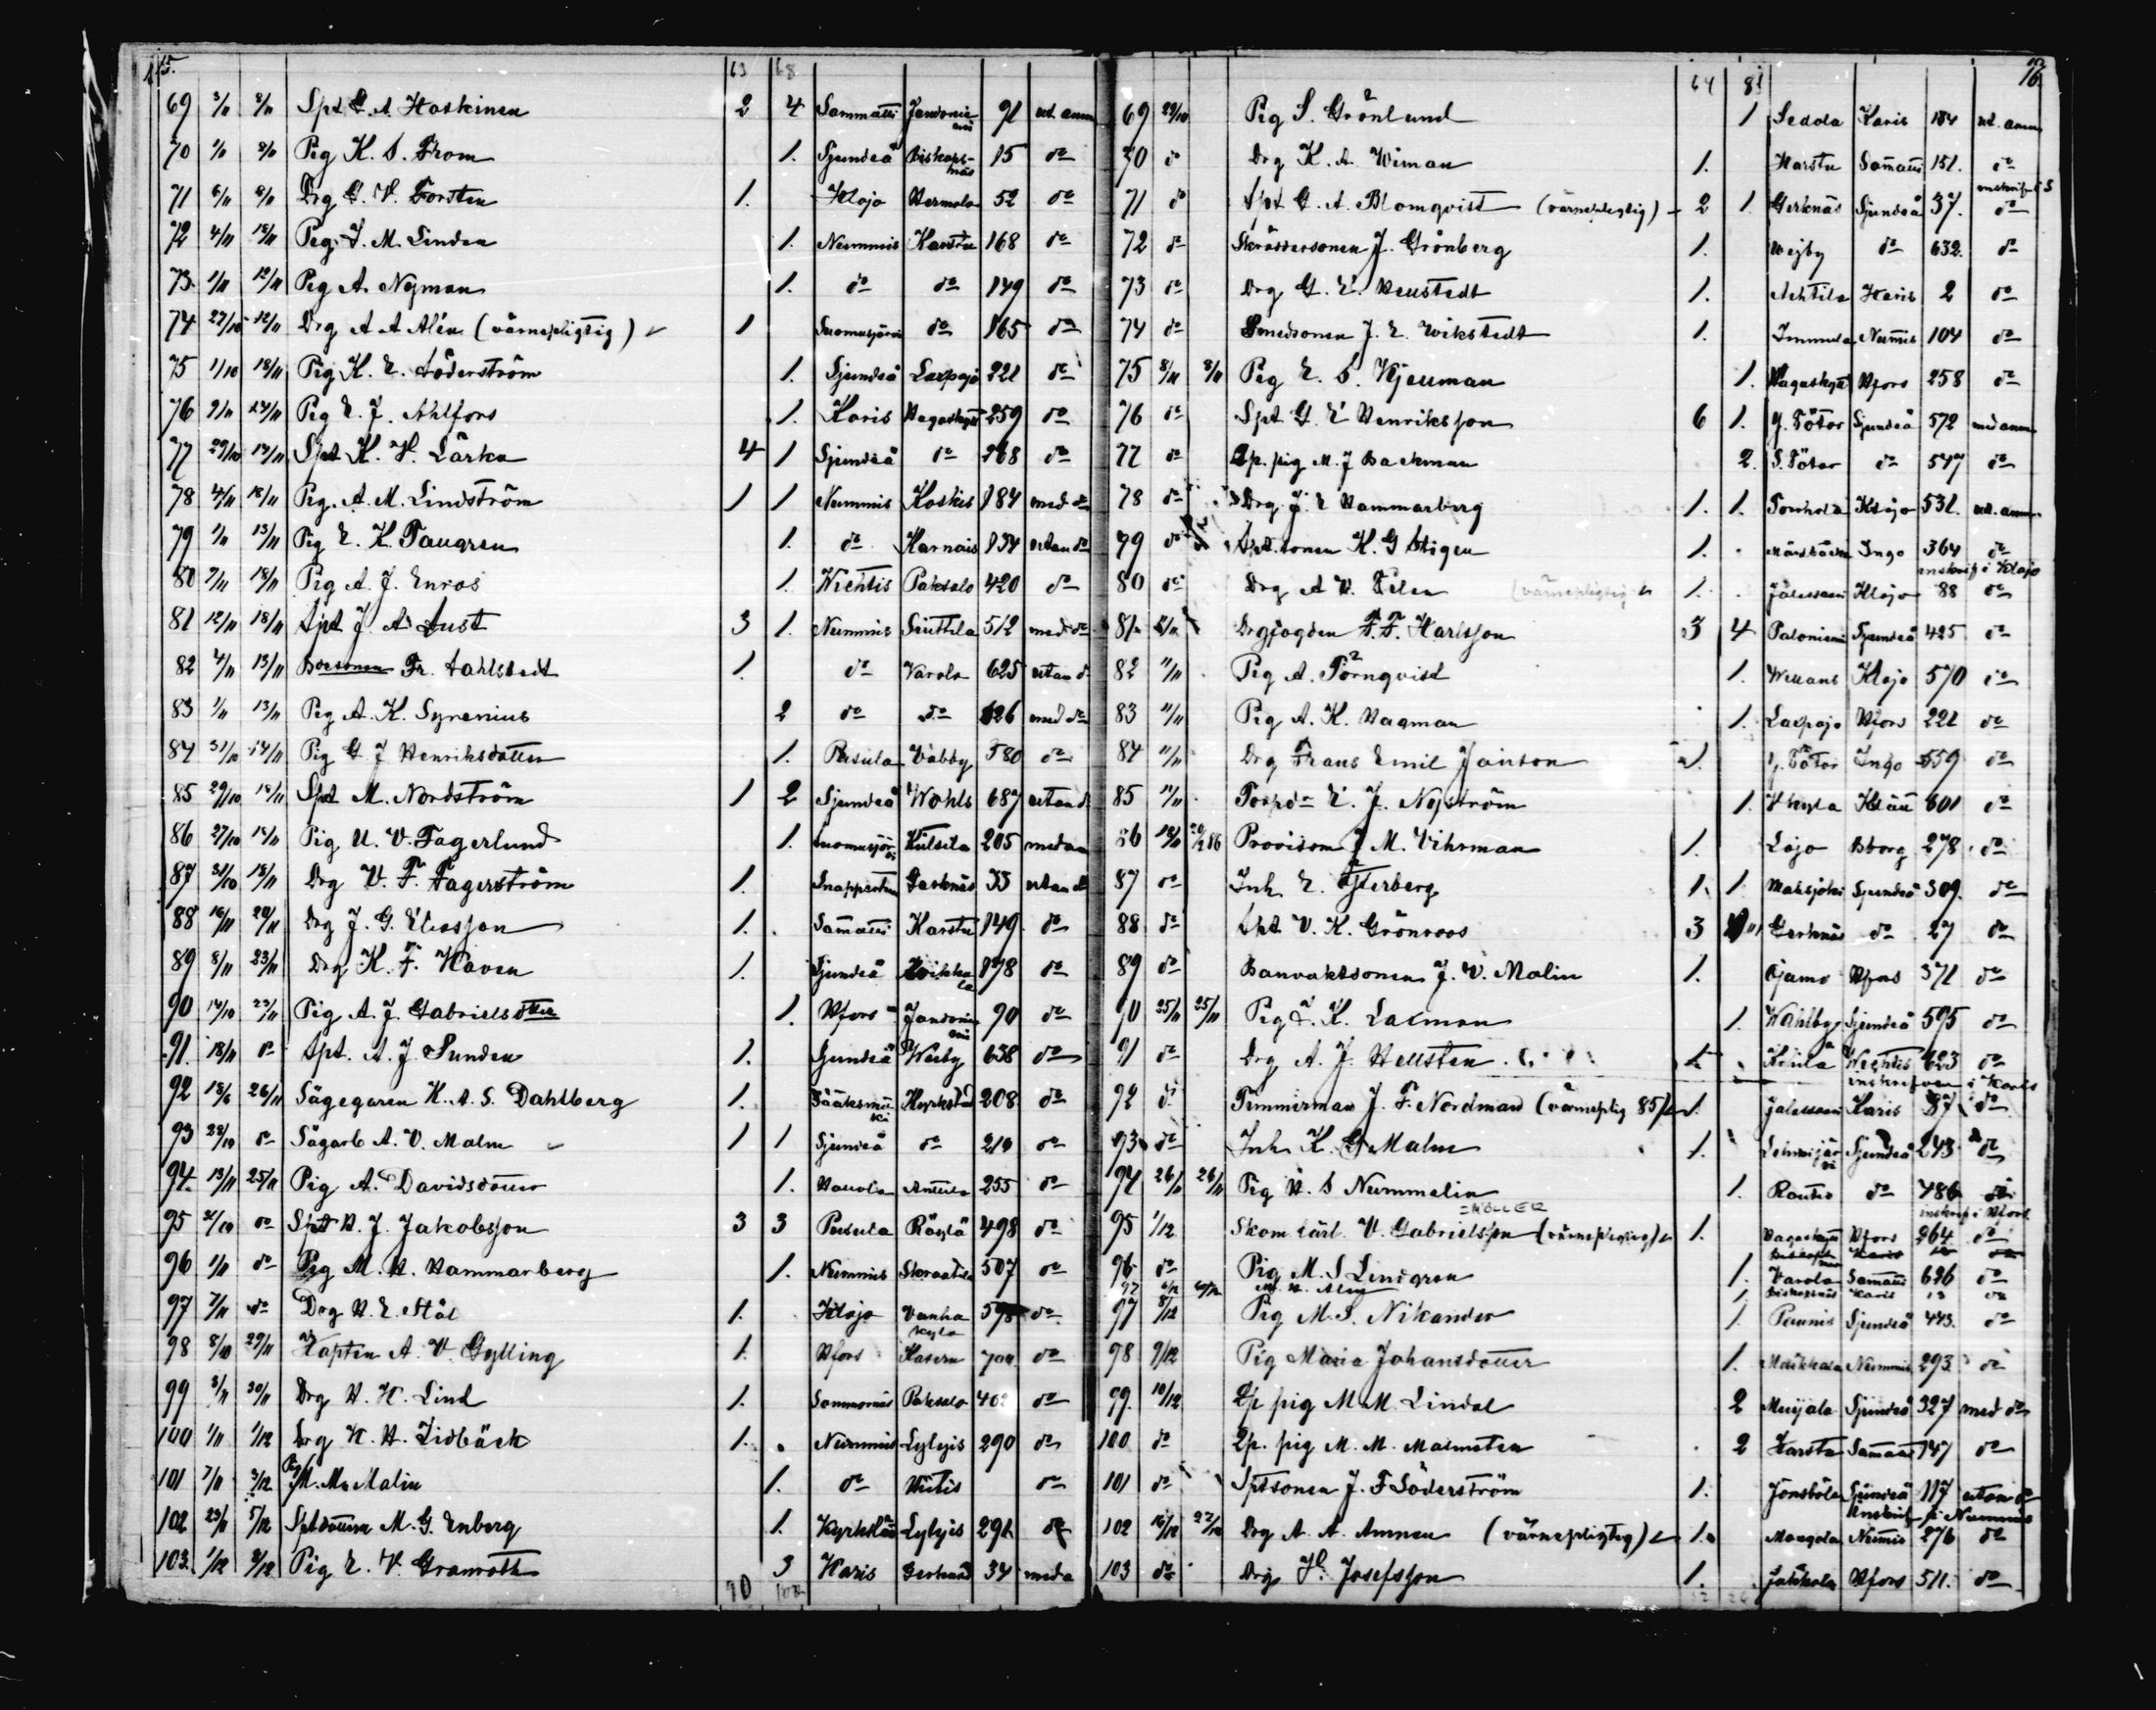 115.
63 68
69 3/11 8/11 Spt G. A. Koskinen 2 4 Sammatti Jandonie mi 91 ut. anm
70 1/11 8/11 Pig K. S. From 1. Sjundeå Biskops- näs 15 do
71 6/11 8/11 Drg G. V. Forsten 1. Klojo Hermola 52 do
72 4/11 12/11 Pig I. M. Linden 1. Nummis Karstu 168 do
73. 1/11 12/11 Pig A. Nyman 1. do do 149 do
74 27/10 12/11 Drg A A Alén (värnepligtig) 1 Suomusjärvi do 165 do
75 1/10 12/11 Pig K. E. Söderström 1. Sjundeå Laxpojo 221 do
76 9/11 14/11 Pig E. J. Ahlfors 1. Karis 259 do
77 29/10 13/11 Spt K. V. Lärka 4 1 Sjundeå do 268 do
78 4/11 18/11 Pig. A. M. Lindström 1 1 Nummis Koskis 184 med do
79 1/11 13/11 Pig E. K. Taugren 1. do Harnais 134 utan do
80 7/11 18/11 Pig A. J. Enros 1. Wichtis Paksalo 420 do
81 12/11 18/11 Spt J. A. Lust 3 1. Nummis Sinttila 512 med do
82 4/11 13/11 Fr. Sahlstedt 1. do Varola 625 utan d
83 1/11 13/11 Pig A. K. Syrenius 2 do do 626 med do
84 31/10 14/11 Pig G. J Henriksdotter 1. Pusula Wabby 580 do
85 29/10 18/11 Spt M. Nordström 1 2 Sjundeå Wohls 687 utan d
86 27/10 18/11 Pig U. V. Fagerlund 1. Suomusjär vi Kutsila 205 med an
87 31/10 18/11 Drg V. F. Fagerström 1. Gerknäs 33 utan d
88 16/11 20/11 Drg J. G. Eliasson 1. Samatti Karstu 149 do
89 8/11 23/11 Drg K. F. Haven 1. Sjundeå 178 do
90 14/10 23/11 Pig A. J. Gabrielsdotter 1. Hfors Jandonie mi 90 do
91. 18/11 do Spt. A. J. Sunden 1. Sjundeå Wejby 638 do
92 18/6 26/11 Sågegaren K. A. S. Dahlberg 1. Sääksmä ki Kyrkstad 208 do
93 28/10 do Sågarb A. V. Malm 1 1 Sjundeå do 210 do
94. 13/11 25/11 Pig A. Davidsdotter 1. 255 do
95 do Spt V. J. Jakobsson 3 3 Pusula Röylä 498 do
96 1/11 do Pig M. H. Hammarberg 1. Nummis Skraatila 507 do
97 7/11 do Drg H. E. Stål 1. Klojo Vanha kyla 598 do
98 8/10 29/11 Kapten A. V. Gylling 1. Hfors Kasern 700 do
99 5/11 30/11 Drg V. H. Lind 1. Paksalo 402 do
100 1/11 1/12 Drg K. H. Lidbäck 1. Nummis Lylyis 290 do
101 7/11 3/12 Pig M. M. Malin 1. do do
102 23/11 5/12 Sptdottern M. G. Enberg 1. Kyrkslätt Lylyis 291 do
103. 1/12 9/12 Pig E. V. Granroth 3 Karis Gerknäs 34 med a
90 100
76
64 81
69 29/10 Pig S. Grönlund 1 Sedola Karis 184 ut. anm
70 do Drg K. A. Wiman 1. Karstu Samatti 151. do
inskrifv i S
71 do Spt G. A. Blomqvist (värnepligtig) 2 1. Gerknäs Sjundeå 37. do
72 do Skräddersonen J. Grönberg 1. Wejby do 632. do
73 do Drg G. E. Hellstedt 1. Karis 2 do
74 do Smedsonen J. E. Wikstedt 1. Immula Nummis 104 do
75 8/11 8/11 Pig E. S. Kjellman 1. Hfors 258 do
76 do Spt G. E. Henriksson 6 1. Y. Tötar Sjundeå 572 med anm
77 do Qp. pig M. J Backman 2. S. Tötar do 547 do
78 do Drg J. E Hammarberg 1. 1. Torhola Klojo 531. ut. anm
79 do Spt. sonen K. G Stigen 1. Ingo 364 do
inskrif i Klojo
80 do Drg A V. Vilen (värnepligtig 1. Jälessaari Klojo 88 do
81. Drgjogden F. F. Karlsson 3 4 Paloniemi Sjundeå 425 do
82 11/11 Pig A. Törnqvist 1. Klojo 570 do
83 11/11 Pig A. K. Hagman 1. Laxpojo Hfors 221 do
84 11/11 Drg Frans Emil Janson 1. Y. Tötar Ingo 559 do
85 11/11 E. J. Nyström 1. 601 do
86 Provisorn J M. Vihrman 1. Lojo Bborg 278 do
87 do Inh E. Österberg 1. 1 Maksjoki Sjundeå 309. do
88 do Spt V. K. Grönroos 3 Gerknäs do 27 do
89 do Banvaktsonen J. V. Malin 1. Ojamo Hfors 371 do
90 25/11 25/11 Pig I. K. Laxman 1. Wahlby Sjundeå 595 do
91 do Drg A. J. Hellsten Wichtis 623 do
inskrifven i Karis
92 do Timmerman J. F. Nordman (värneplig 85) 1. Jalassaari Karis 87 do
93 do Inh K. G. Malm 1. Lohmijär vi Sjundeå 243 do
94 26/11 26/11 Pig H. S Nummelin 1. do 486 do
=MÖLLER
inskrif i Hfors
95 1/12 Skom lärl. V. Gabrielsson (värnepligtig) 1. Hfors 264 do
96 do Pig M. S Lindgren 1. Varola Samatti 626 do
97 M. H. Alm 1. Biskopsnäs Karis 13 do
97 8/12 Pig M. S. Nikander 1. Sjundeå 443. do
98 9/12 Pig Maria Johansdotter 1. Maikkala Nummis 293. do
99. 10/12 Qp pig M. M. Lindal 2 Muijala Sjundeå 327 med do
100 do Qp. pig M. M. Malmsten 2 Karstu Samatti 147 do
101 do Sptsonen J. F Söderström 1. Jönsböle Sjundeå 117 utan do
Inskrif i Nummis
102 16/12 22/12 Drg A. A. Amnen (värnepligtig) 1. Maugola Nummis 276 do
103 do Drg J. Josefsson 1. Hfors 511. do